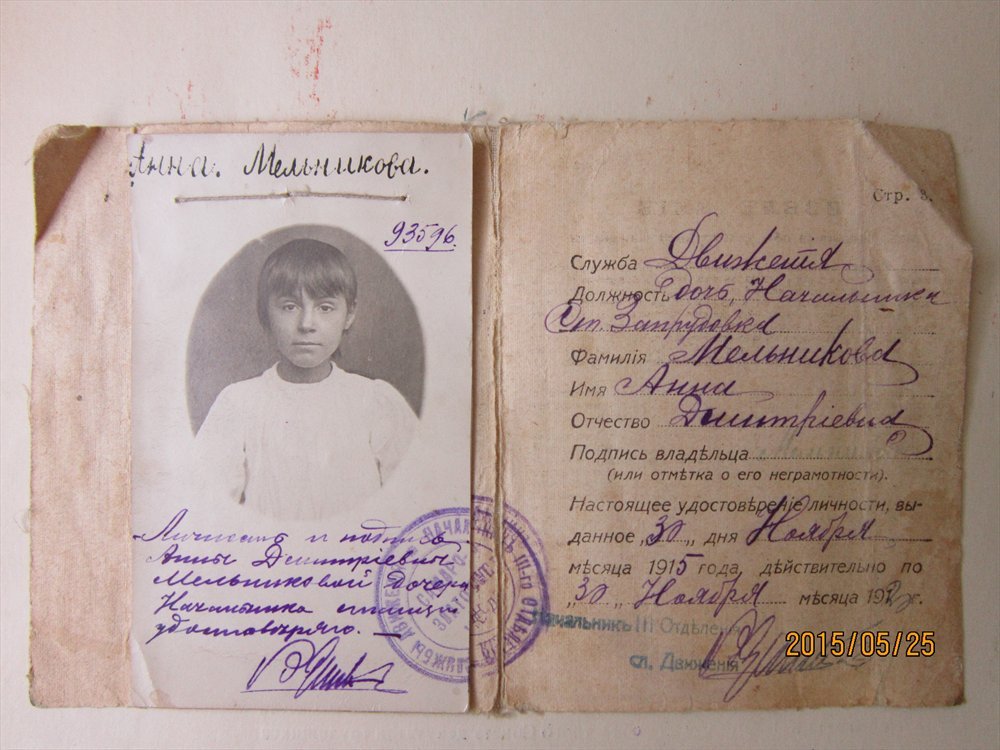 Анна. Мельникова.
93596.
Личность и подпись
Анны Дмитріевны
Мельниковой дочери
Начальника станціи
удостовѣряю.
НАЧАЛЬНИКЪ III-го ОТДѢЛ
СЛУЖБЫ ДВИЖЕ
Стр. 3.
Служба Движенія
Должность дочь, Начальника
Ст. Запрудовка
Фамилія Мельникова
Имя Анна
Отчество Дмитріевна
Подпись владѣльца
(или отмѣтка о его неграмотности).
Настоящее удостовѣреніе личности, вы-
данное „30„ дня Ноября
мѣсяца 1915 года, дѣйствительно по
„30„ Ноября мѣсяца 192
Начальникъ III Отдѣленія
сл. Движенія
2015/05/25